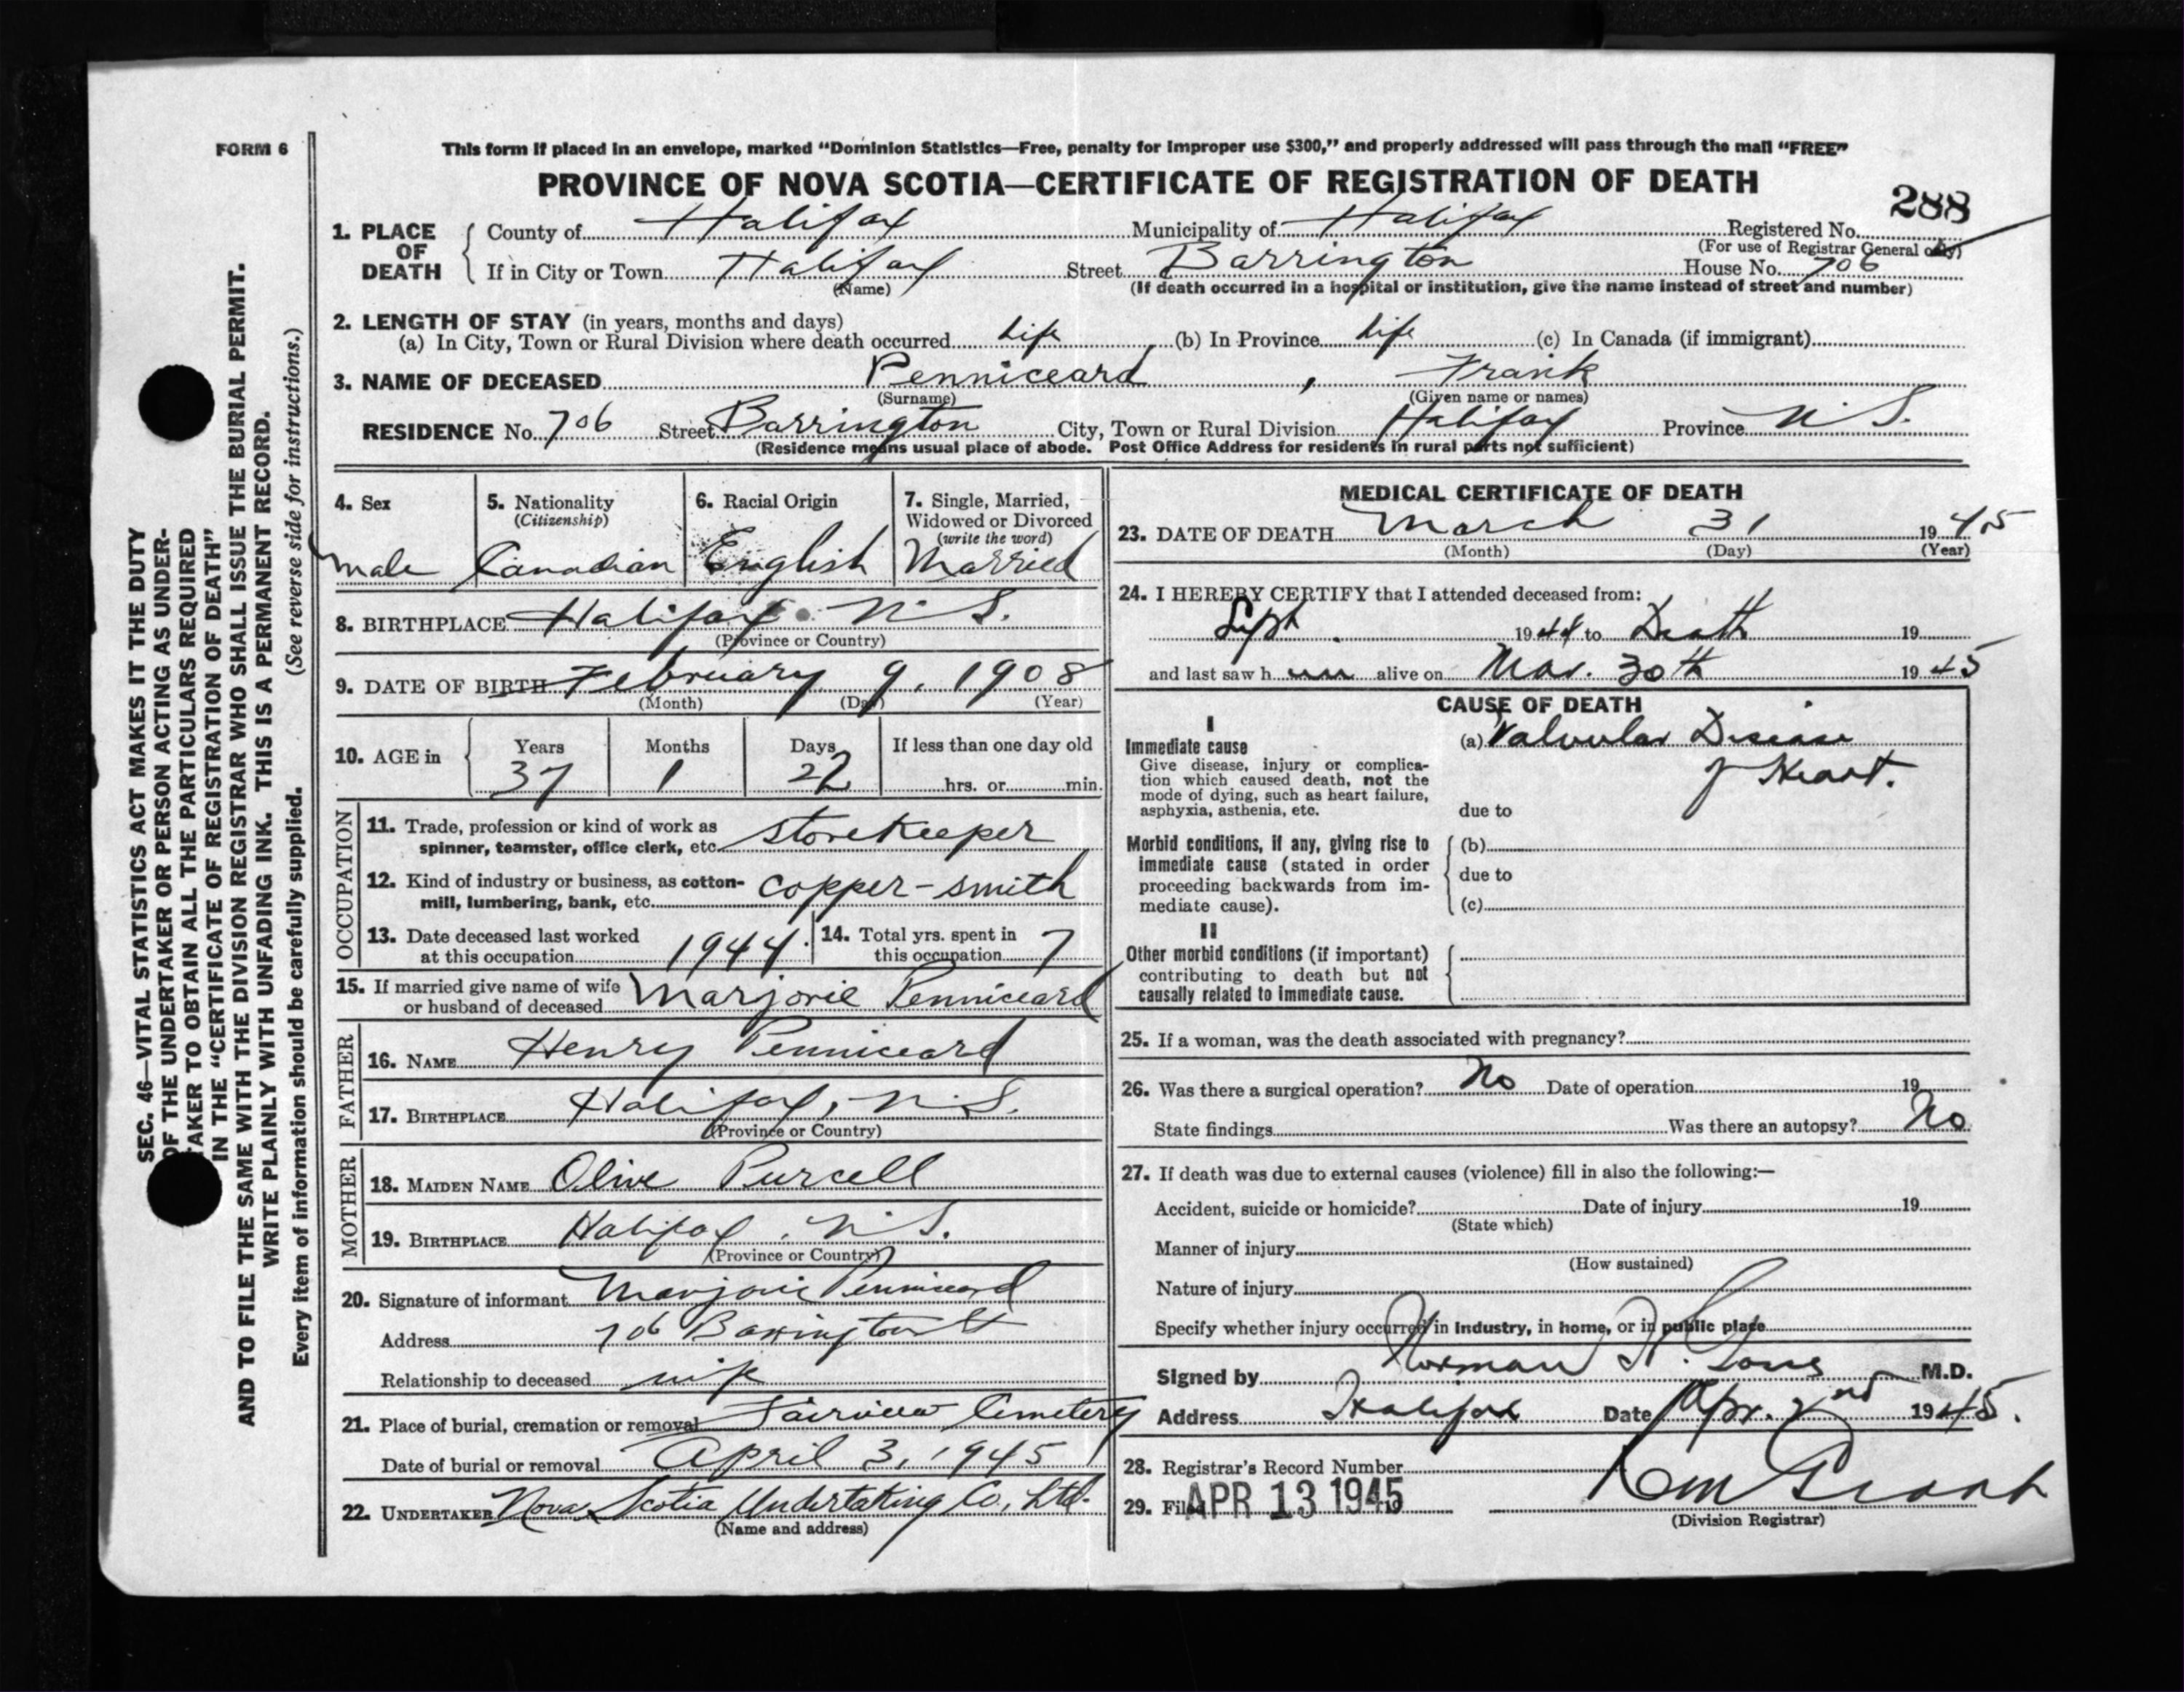 FORM 6
This form if placed in an envelope, marked “Dominion Statistics—Free, penalty for improper use $300,” and properly addressed will pass through the mail “FREE”
PROVINCE OF NOVA SCOTIA—CERTIFICATE OF REGISTRATION OF DEATH
288
1. PLACE OF DEATH { County of Halifax Municipality of Halifax Registered No.
(For use of Registrar General only)
If in City or Town Halifax Street Barrington House No. 706
(Name) (If death occurred in a hospital or institution, give the name instead of street and number)
2. LENGTH OF STAY (in years, months and days)
(a) In City, Town or Rural Division where death occurred Life (b) In Province Life (c) In Canada (if immigrant)
3. NAME OF DECEASED Penniceard , Frank
(Surname) (Given name or names)
RESIDENCE No. 706 Street Barrington City, Town or Rural Division Halifax Province N.S.
(Residence means usual place of abode. Post Office Address for residents in rural parts not sufficient)
4. Sex
male
5. Nationality
(Citizenship)
Canadian
6. Racial Origin
English
7. Single, Married,
Widowed or Divorced
(write the word)
Married
8. BIRTHPLACE Halifax N.S.
(Province or Country)
9. DATE OF BIRTH February 9, 1908
(Month) (Day) (Year)
10. AGE in { Years Months Days If less than one day old
37 1 22 hrs. or min.
OCCUPATION
11. Trade, profession or kind of work as
spinner, teamster, office clerk, etc. storekeeper
12. Kind of industry or business, as cotton-
mill, lumbering, bank, etc. copper-smith
13. Date deceased last worked
at this occupation 1944.
14. Total yrs. spent in
this occupation 7
15. If married give name of wife
or husband of deceased Marjorie Penniceard
FATHER
16. NAME Henry Penniceard
17. BIRTHPLACE Halifax, N.S.
(Province or Country)
MOTHER
18. MAIDEN NAME Olive Purcell
19. BIRTHPLACE Halifax, N.S.
(Province or Country)
20. Signature of informant Marjorie Penniceard
Address 706 Barrington St
Relationship to deceased wife
21. Place of burial, cremation or removal Fairview Cemetery
Date of burial or removal April 3, 1945
22. UNDERTAKER Nova Scotia Undertaking Co., Ltd.
(Name and address)
MEDICAL CERTIFICATE OF DEATH
23. DATE OF DEATH March 31 1945
(Month) (Day) (Year)
24. I HEREBY CERTIFY that I attended deceased from:
Sept. 1944 to Death 19
and last saw him alive on Mar. 30th 1945
CAUSE OF DEATH
I
Immediate cause
Give disease, injury or complica-
tion which caused death, not the
mode of dying, such as heart failure,
asphyxia, asthenia, etc.
(a) Valvular Disease
of Heart.
due to
Morbid conditions, if any, giving rise to
immediate cause (stated in order
proceeding backwards from im-
mediate cause).
(b)
due to
(c)
II
Other morbid conditions (if important)
contributing to death but not
causally related to immediate cause.
25. If a woman, was the death associated with pregnancy?
26. Was there a surgical operation? No Date of operation 19
State findings Was there an autopsy? No
27. If death was due to external causes (violence) fill in also the following:—
Accident, suicide or homicide? Date of injury 19
(State which)
Manner of injury
(How sustained)
Nature of injury
Specify whether injury occurred in industry, in home, or in public place
Signed by Norman H. M.D.
Address Halifax Date Apr. 2nd 1945.
28. Registrar's Record Number
29. Filed APR 13 1945
(Division Registrar)
SEC. 46—VITAL STATISTICS ACT MAKES IT THE DUTY
OF THE UNDERTAKER OR PERSON ACTING AS UNDER-
TAKER TO OBTAIN ALL THE PARTICULARS REQUIRED
IN THE “CERTIFICATE OF REGISTRATION OF DEATH”
AND TO FILE THE SAME WITH THE DIVISION REGISTRAR WHO SHALL ISSUE THE BURIAL PERMIT.
WRITE PLAINLY WITH UNFADING INK. THIS IS A PERMANENT RECORD.
Every item of information should be carefully supplied. (See reverse side for instructions.)